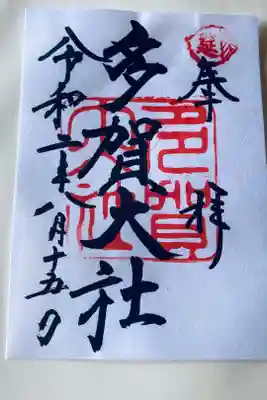 延
奉拝
多賀大社
多賀大社
令和二年八月十五日